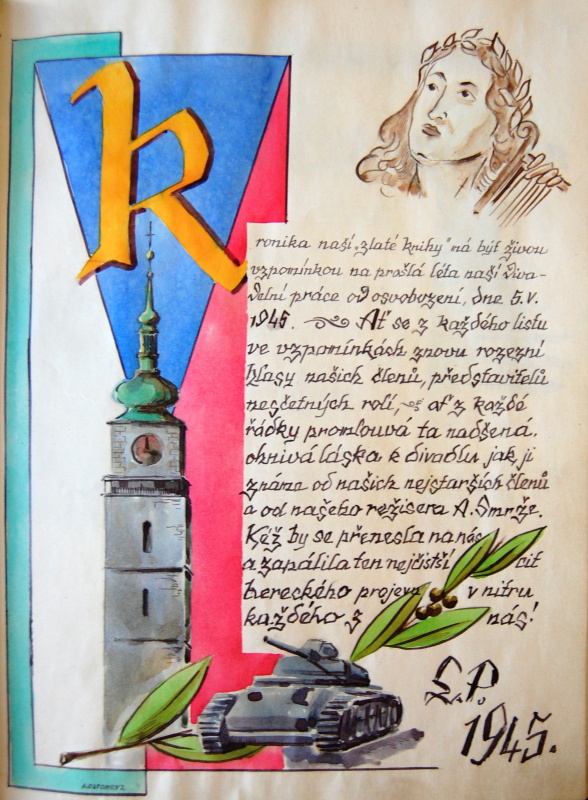 K
ronika naší „zlaté knihy" má být živou
vzpomínkou na prošlá léta naší diva-
delní práce od osvobození, dne 5.V.
1945. Ať se z každého listu
ve vzpomínkách znovu rozezní
hlasy našich členů, představitelů
nesčetných rolí, ať z každé
řádky promlouvá ta nadšená,
ohnivá láska k divadlu, jak ji
známe od našich nejstarších členů
a od našeho režisera A. Smrže.
Kéž by se přenesla na nás
a zapálila ten nejčistší cit
hereckého projevu v nitru
každého z nás!
L.P.
1945.